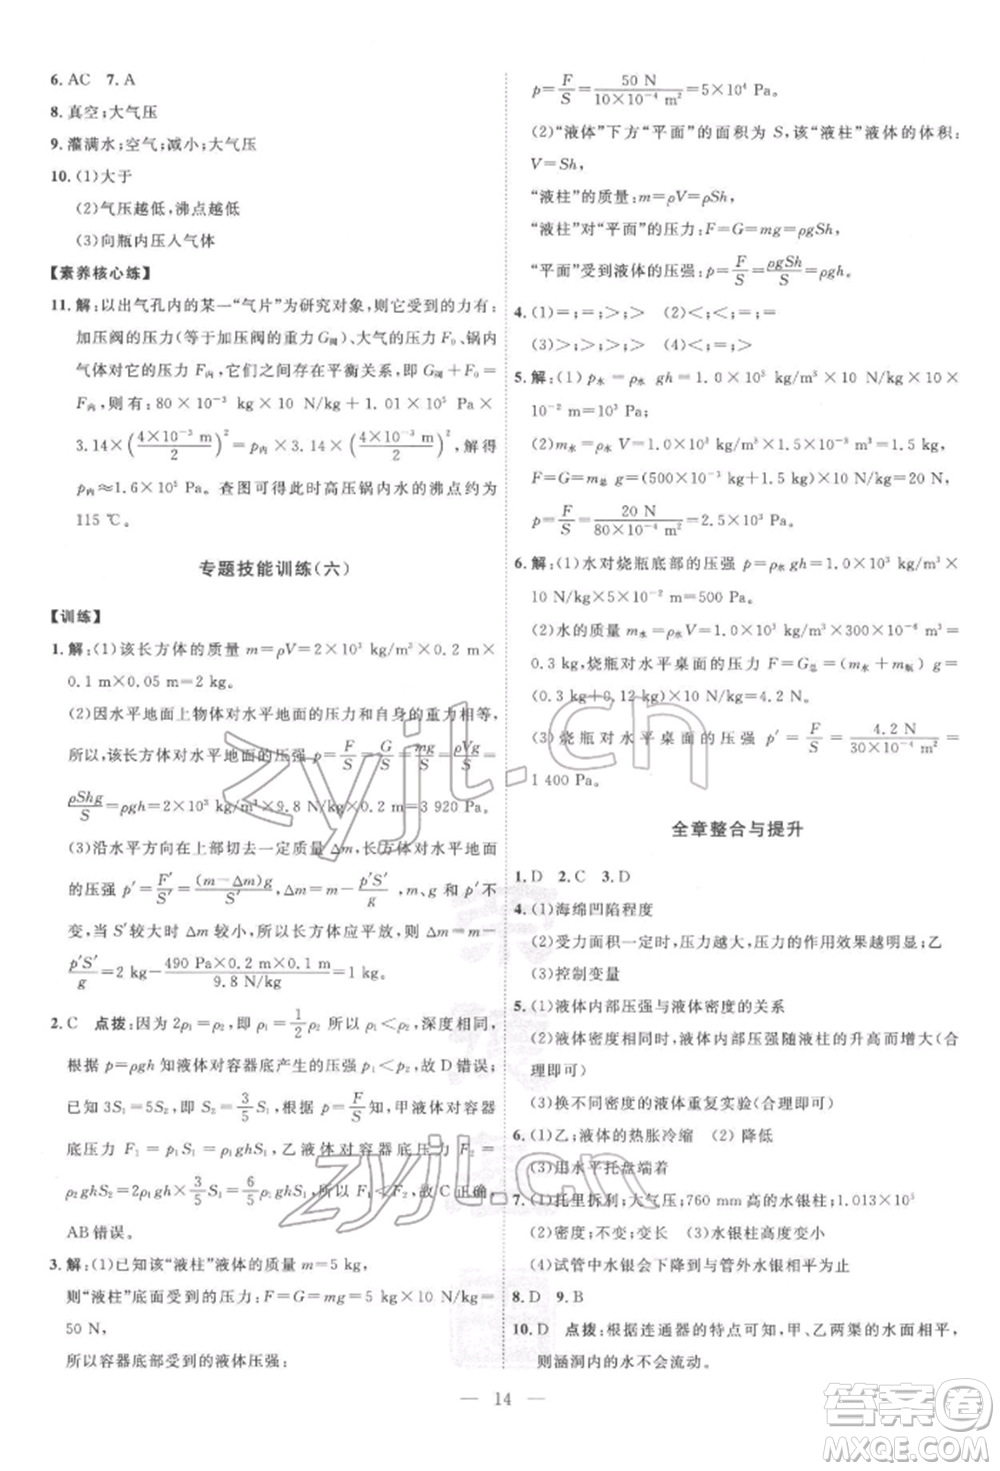 6. AC 7. A
8. 真空;大气压
9. 灌满水;空气;减小;大气压
10. (1)大于
(2)气压越低,沸点越低
(3)向瓶内压人气体
【素养核心练】
11. 解:以出气孔内的某一“气片”为研究对象,它受到的力有:
加压阀的压力(等于加压阀的重力 G阀)、大气的压力 F₀、锅内
气体产生的压力 F内,它们之间存在平衡关系,即 G阀+F₀=
F内,则有:80×10⁻³ kg×10 N/kg+1.01×10⁵ Pa×
3.14×(4×10⁻³ m/2)²=p内×3.14×(4×10⁻³ m/2)²,解得
p内≈1.6×10⁵ Pa。查图可得此时高压锅内水的沸点约为
115 ℃。
专题技能训练(六)
【训练】
1. 解:(1)该长方体的质量 m=ρV=2×10³ kg/m³×0.2 m×
0.1 m×0.05 m=2 kg。
(2)因水平地面上物体对水平地面的压力和自身的重力相等,
所以,该长方体对水平地面的压强 p=F/S=G/S=mg/S=ρVg/S=
ρShg/S=ρgh=2×10³ kg/m³×9.8 N/kg×0.2 m=3 920 Pa。
(3)沿水平方向在上部切去一定质量后,长方体对水平地面
的压强 p′=F′/S′=(m−Δm)g/S′,Δm=m−p′S′/g,m、p′和 g 不
变,当 S′较大时 Δm 较小,所以长方体应平放,则有 Δm=m−
p′S′/g=2 kg−490 Pa×0.2 m×0.1 m/9.8 N/kg=1 kg。
2. C 点拨:因为 2ρ₁=ρ₂,即 ρ₁=1/2ρ₂ 所以 ρ₁<ρ₂,深度相同,
根据 p=ρgh 知液体对容器底产生的压强 p₁<p₂,故 D 错误。
已知 3S₁=5S₂,即 S₂=3/5S₁,根据 p=F/S 知,甲液体对容器
底压力 F₁=p₁S₁=ρ₁ghS₁,乙液体对容器底压力 F₂=
ρ₂ghS₂=2ρ₁gh×3/5S₁=6/5ρ₁ghS₁,所以 F₁<F₂,故 C 正确、
AB 错误。
3. 解:(1)已知该“液柱”液体的质量 m=5 kg,
则“液柱”底面受到的压力:F=G=mg=5 kg×10 N/kg=
50 N,
所以容器底部受到的液体压强:
p=F/S=50 N/10×10⁻⁴ m²=5×10⁴ Pa。
(2)“液体”下方“平面”的面积为 S,该“液柱”液体的体积:
V=Sh,
“液柱”的质量:m=ρV=ρSh,
“液柱”对“平面”的压力:F=G=mg=ρgSh,
“平面”受到液体的压强:p=F/S=ρgSh/S=ρgh。
4. (1)=;=;>;> (2)<;>;<;=
(3)>;>;>;> (4)<;<;>;>
5. 解:(1)p水=ρ水 gh=1.0×10³ kg/m³×10 N/kg×10×
10⁻² m=1×10³ Pa;
(2)m水=ρ水 V=1.0×10³ kg/m³×1.5×10⁻³ m³=1.5 kg,
F=G=m总 g=(500×10⁻³ kg+1.5 kg)×10 N/kg=20 N,
p=F/S=20 N/80×10⁻⁴ m²=2.5×10³ Pa。
6. 解:(1)水对烧瓶底部的压强:p=ρ水 gh=1.0×10³ kg/m³×
10 N/kg×5×10⁻² m=500 Pa,
(2)水的质量 m水=ρ水V=1.0×10³ kg/m³×300×10⁻⁶ m³=
0.3 kg,烧瓶对水平桌面的压力 F=G总=(m水+m瓶)g=
(0.3 kg+0.12 kg)×10 N/kg=4.2 N。
(3)烧瓶对水平桌面的压强 p′=F/S=4.2 N/30×10⁻⁴ m²=
1 400 Pa。
全章整合与提升
1. D 2. C 3. D
4. (1)海绵凹陷程度
(2)受力面积一定时,压力越大,压力的作用效果越明显;乙
(3)控制变量
5. (1)液体内部压强与液体密度的关系
(2)液体密度相同时,液体内部压强随液柱的升高而增大(合
理即可)
(3)换不同密度的液体重复实验(合理即可)
6. (1)乙;液体的热胀冷缩 (2)降低
(3)用水平托盘端着
7. (1)托里拆利;大气压;760 mm高的水银柱;1.013×10⁵
(2)密度;不变;变长 (3)水银柱高度变小
(4)试管中水银会下降至与管外水银相平为止
8. D 9. B
10. D 点拨:根据连通器的特点可知,甲、乙两渠的水面相平,
则涵洞内的水不会流动。
14
zyjl.cn
zyjl.cn
答案圈
MXQE.COM